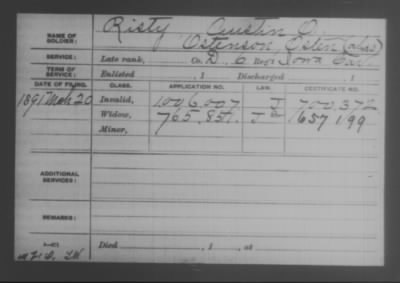 Risty Austin O.
NAME OF SOLDIER:
Ostenson, Esten (alias)
SERVICE: Late rank, Co. D, 6 Reg't Iowa Cav.
TERM OF SERVICE: Enlisted , 1 Discharged , 1
DATE OF FILING. CLASS. APPLICATION NO. LAW. CERTIFICATE NO.
1891 Mch 20 Invalid, 1006.007 J 700.372
Widow, 765.857. 657199
Minor,
ADDITIONAL SERVICES:
REMARKS:
Died , 1 , at